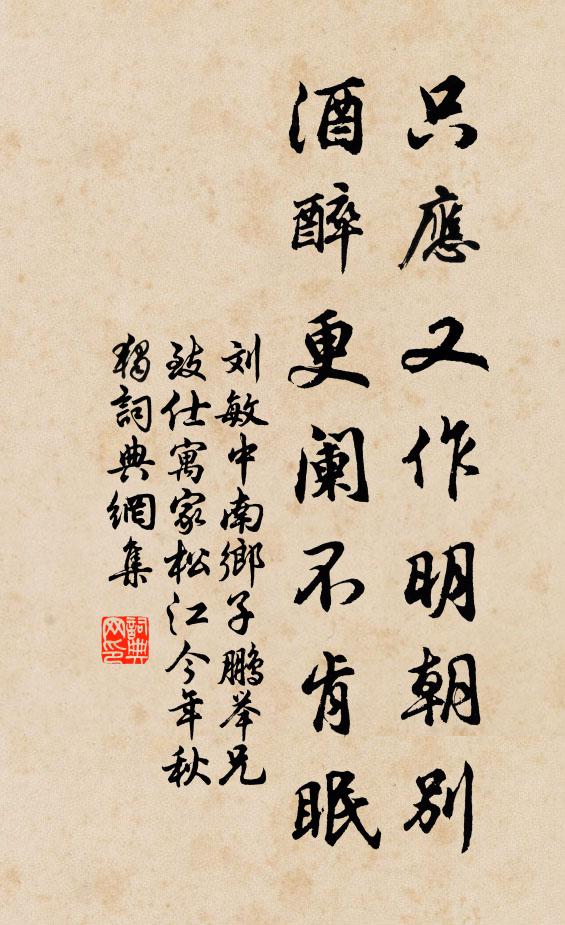 只應又作明朝別
酒醉更阑不肯眠
刘敏中南鄉子鵬举兄
致仕寓家松江今年秋
獨詞典網集
詞典
网印